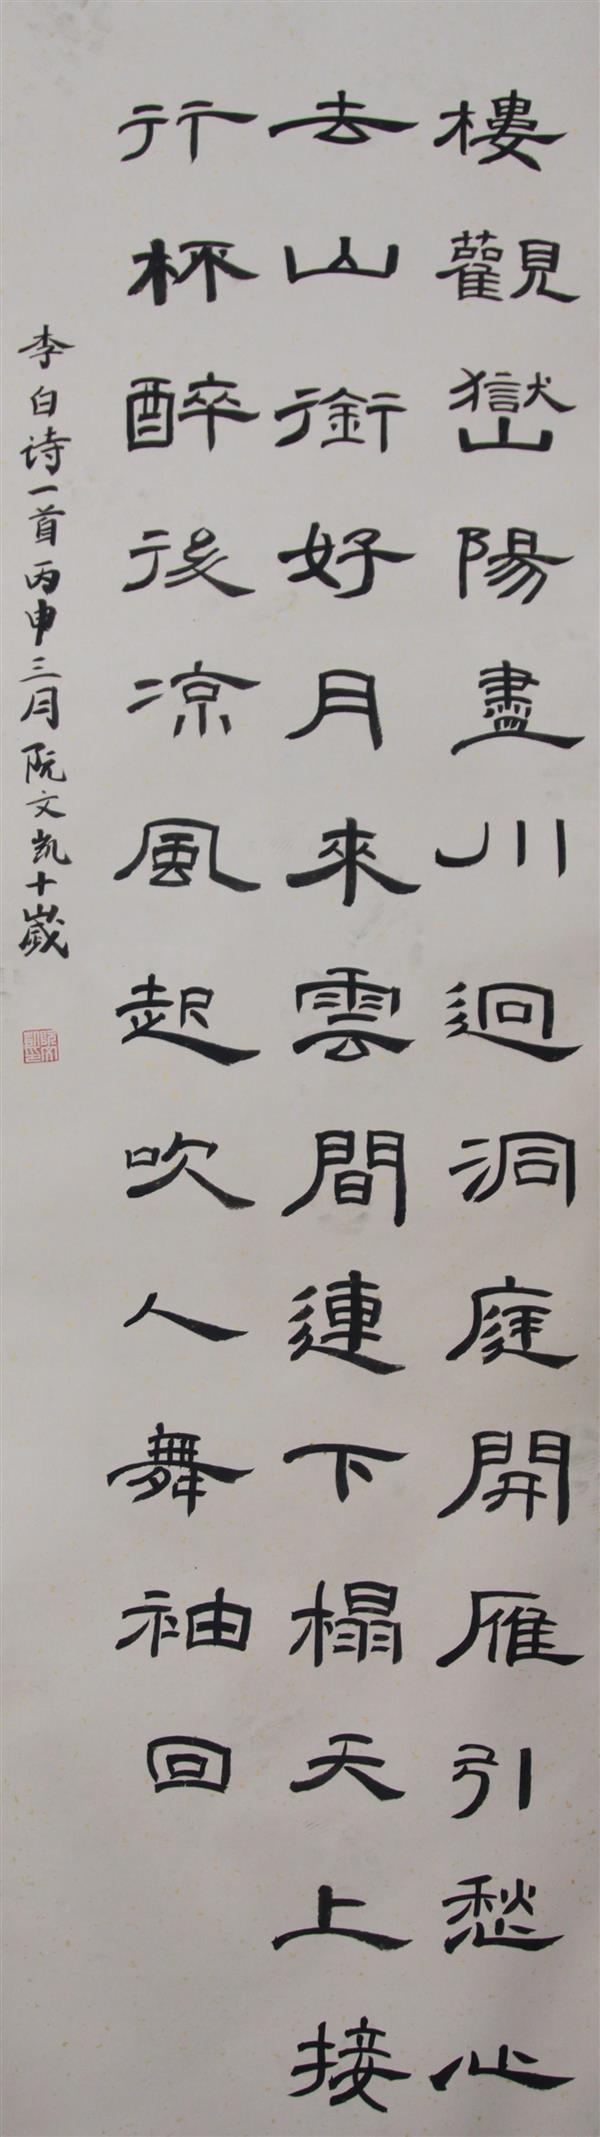 樓觀嶽陽盡川迥洞庭開雁引愁心
去山銜好月來雲間連下榻天上接
行杯醉後涼風起吹人舞袖回
李白诗一首丙申三月阮文凯十歲